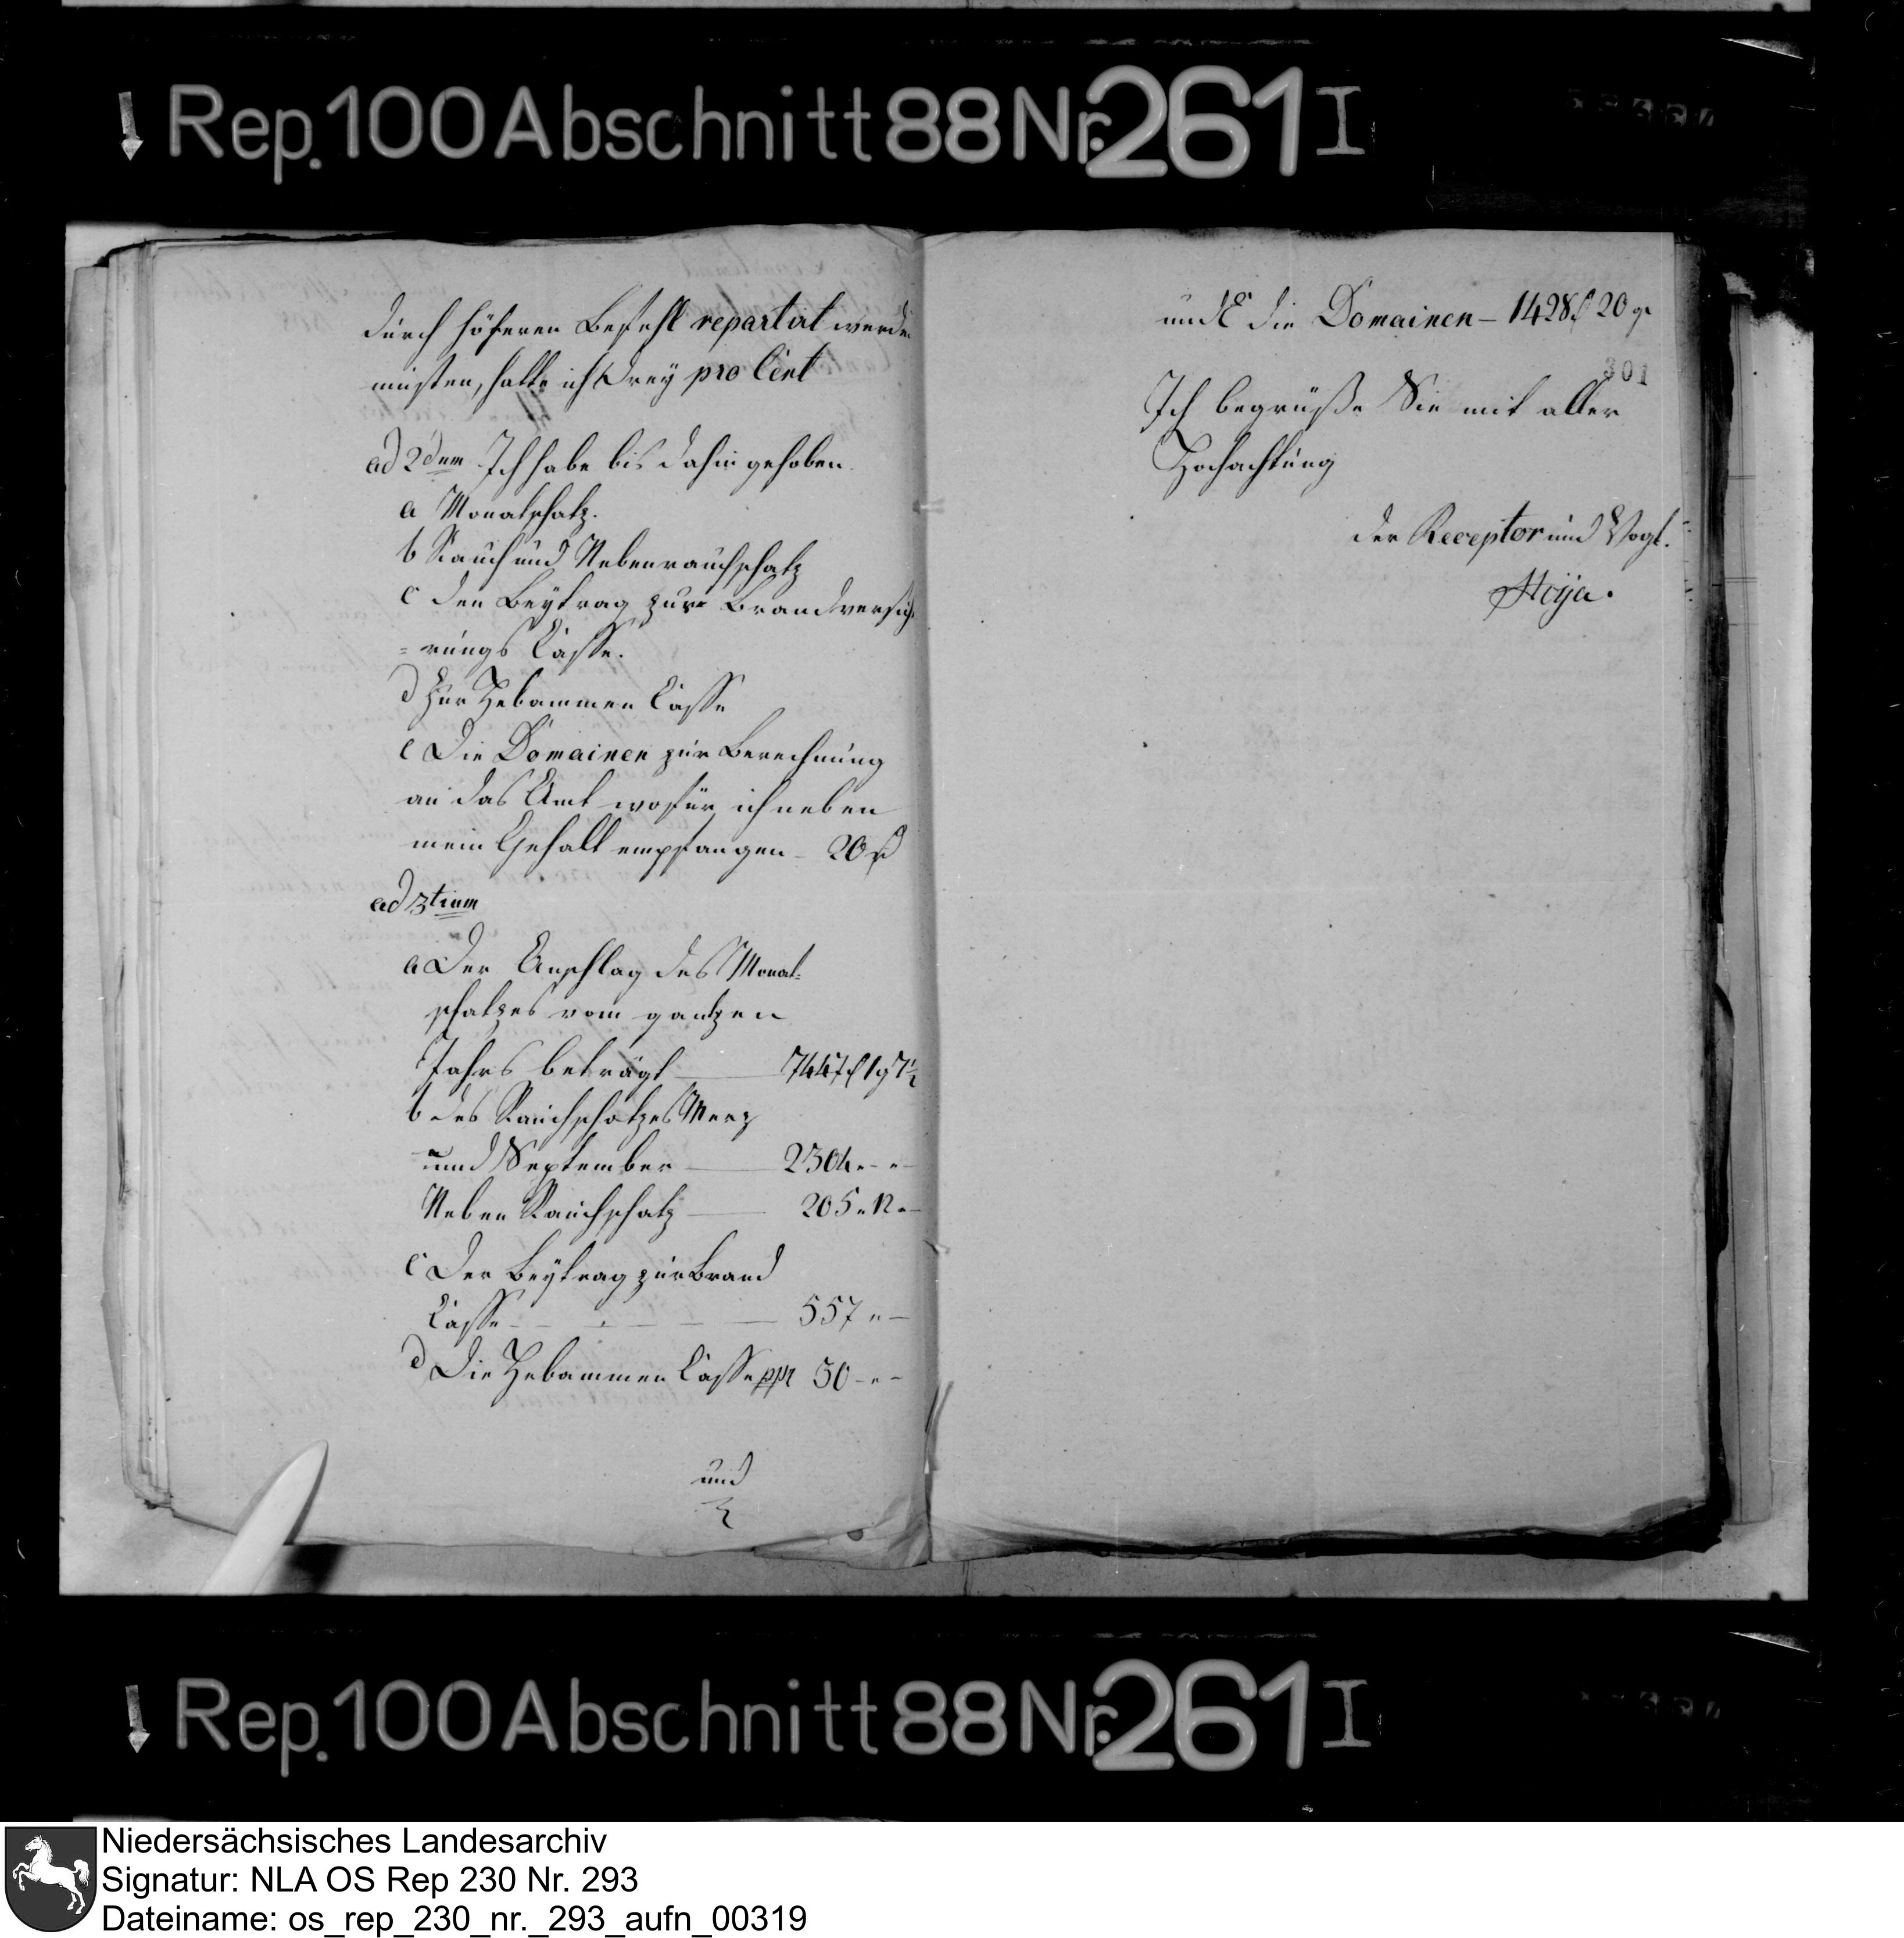 Rep. 100 Abschnitt 88 Nr. 261 I
durch höheren Befehl repartirt werden
müsten, hatte ich drey pro Cent
ad 2dum Ich habe bis dahin gehoben
a Monatschatz.
b Rauch und Nebenrauchschatz
c den Beytrag zur Brandversiche
=rungs Casse.
d zur Hebammen Casse
e Die Domainen zur Berechnung
an das Amt wofür ich neben
mein Gehalt empfangen - 20
ad 3tium
a Der Anschlag des Monat=
schatzes vom gantzen
Jahrs beträgt — 7447 1 7½
b des Rauchschatzes Merz
und September — 2304 " - " -
Neben Rauchschatz — 205 " 12 " -
c Der Beytrag zur Brand
Casse - - - - - — 557 " —
d Die Hebammen Casse ppr 50 - " -
und
und E die Domainen — 1428 20
301
Ich begrüße Sie mit aller
Hochachtung
der Receptor und Vogt.
Rep. 100 Abschnitt 88 Nr. 261 I
Niedersächsisches Landesarchiv
Signatur: NLA OS Rep 230 Nr. 293
Dateiname: os_rep_230_nr._293_aufn_00319